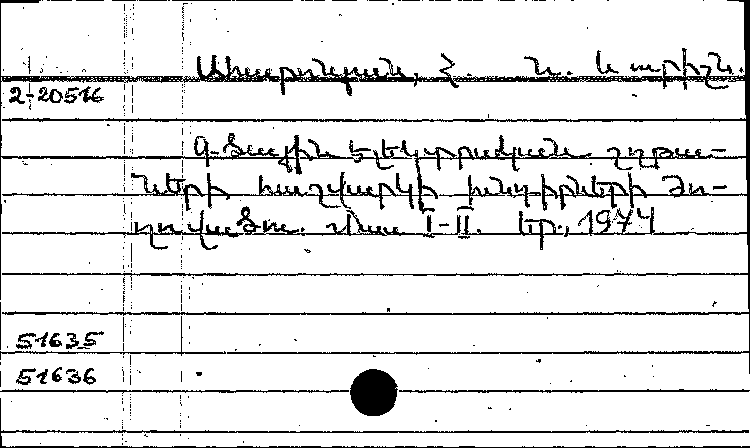 Ահարոնյան, Հ. Ն. և ուրիշն.
2-20516
Գծային էլեկտրական շղթա-
ների հաշվարկի խնդիրների ժո-
ղովածու. Մաս I-II. Եր., 1974
51635
51636